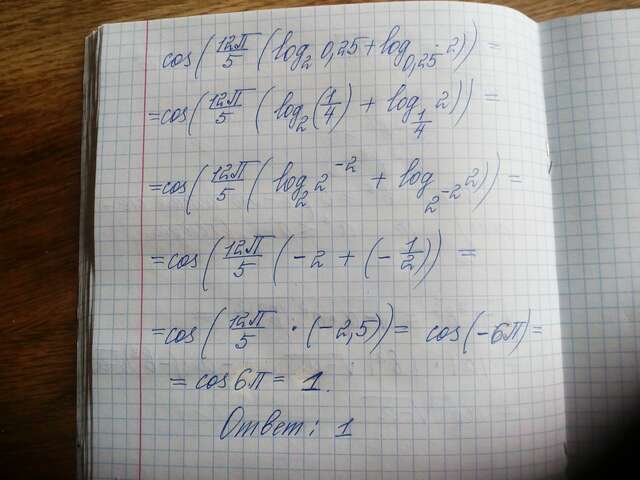 cos(12π/5 (log₂ 0,25 + log₀,₂₅ 2)) =
= cos(12π/5 (log₂(1/4) + log_{1/4} 2)) =
= cos(12π/5 (log₂ 2⁻² + log_{2⁻²} 2)) =
= cos(12π/5 (-2 + (-1/2)) =
= cos(12π/5 · (-2,5)) = cos(-6π) =
= cos 6π = 1.
Ответ: 1